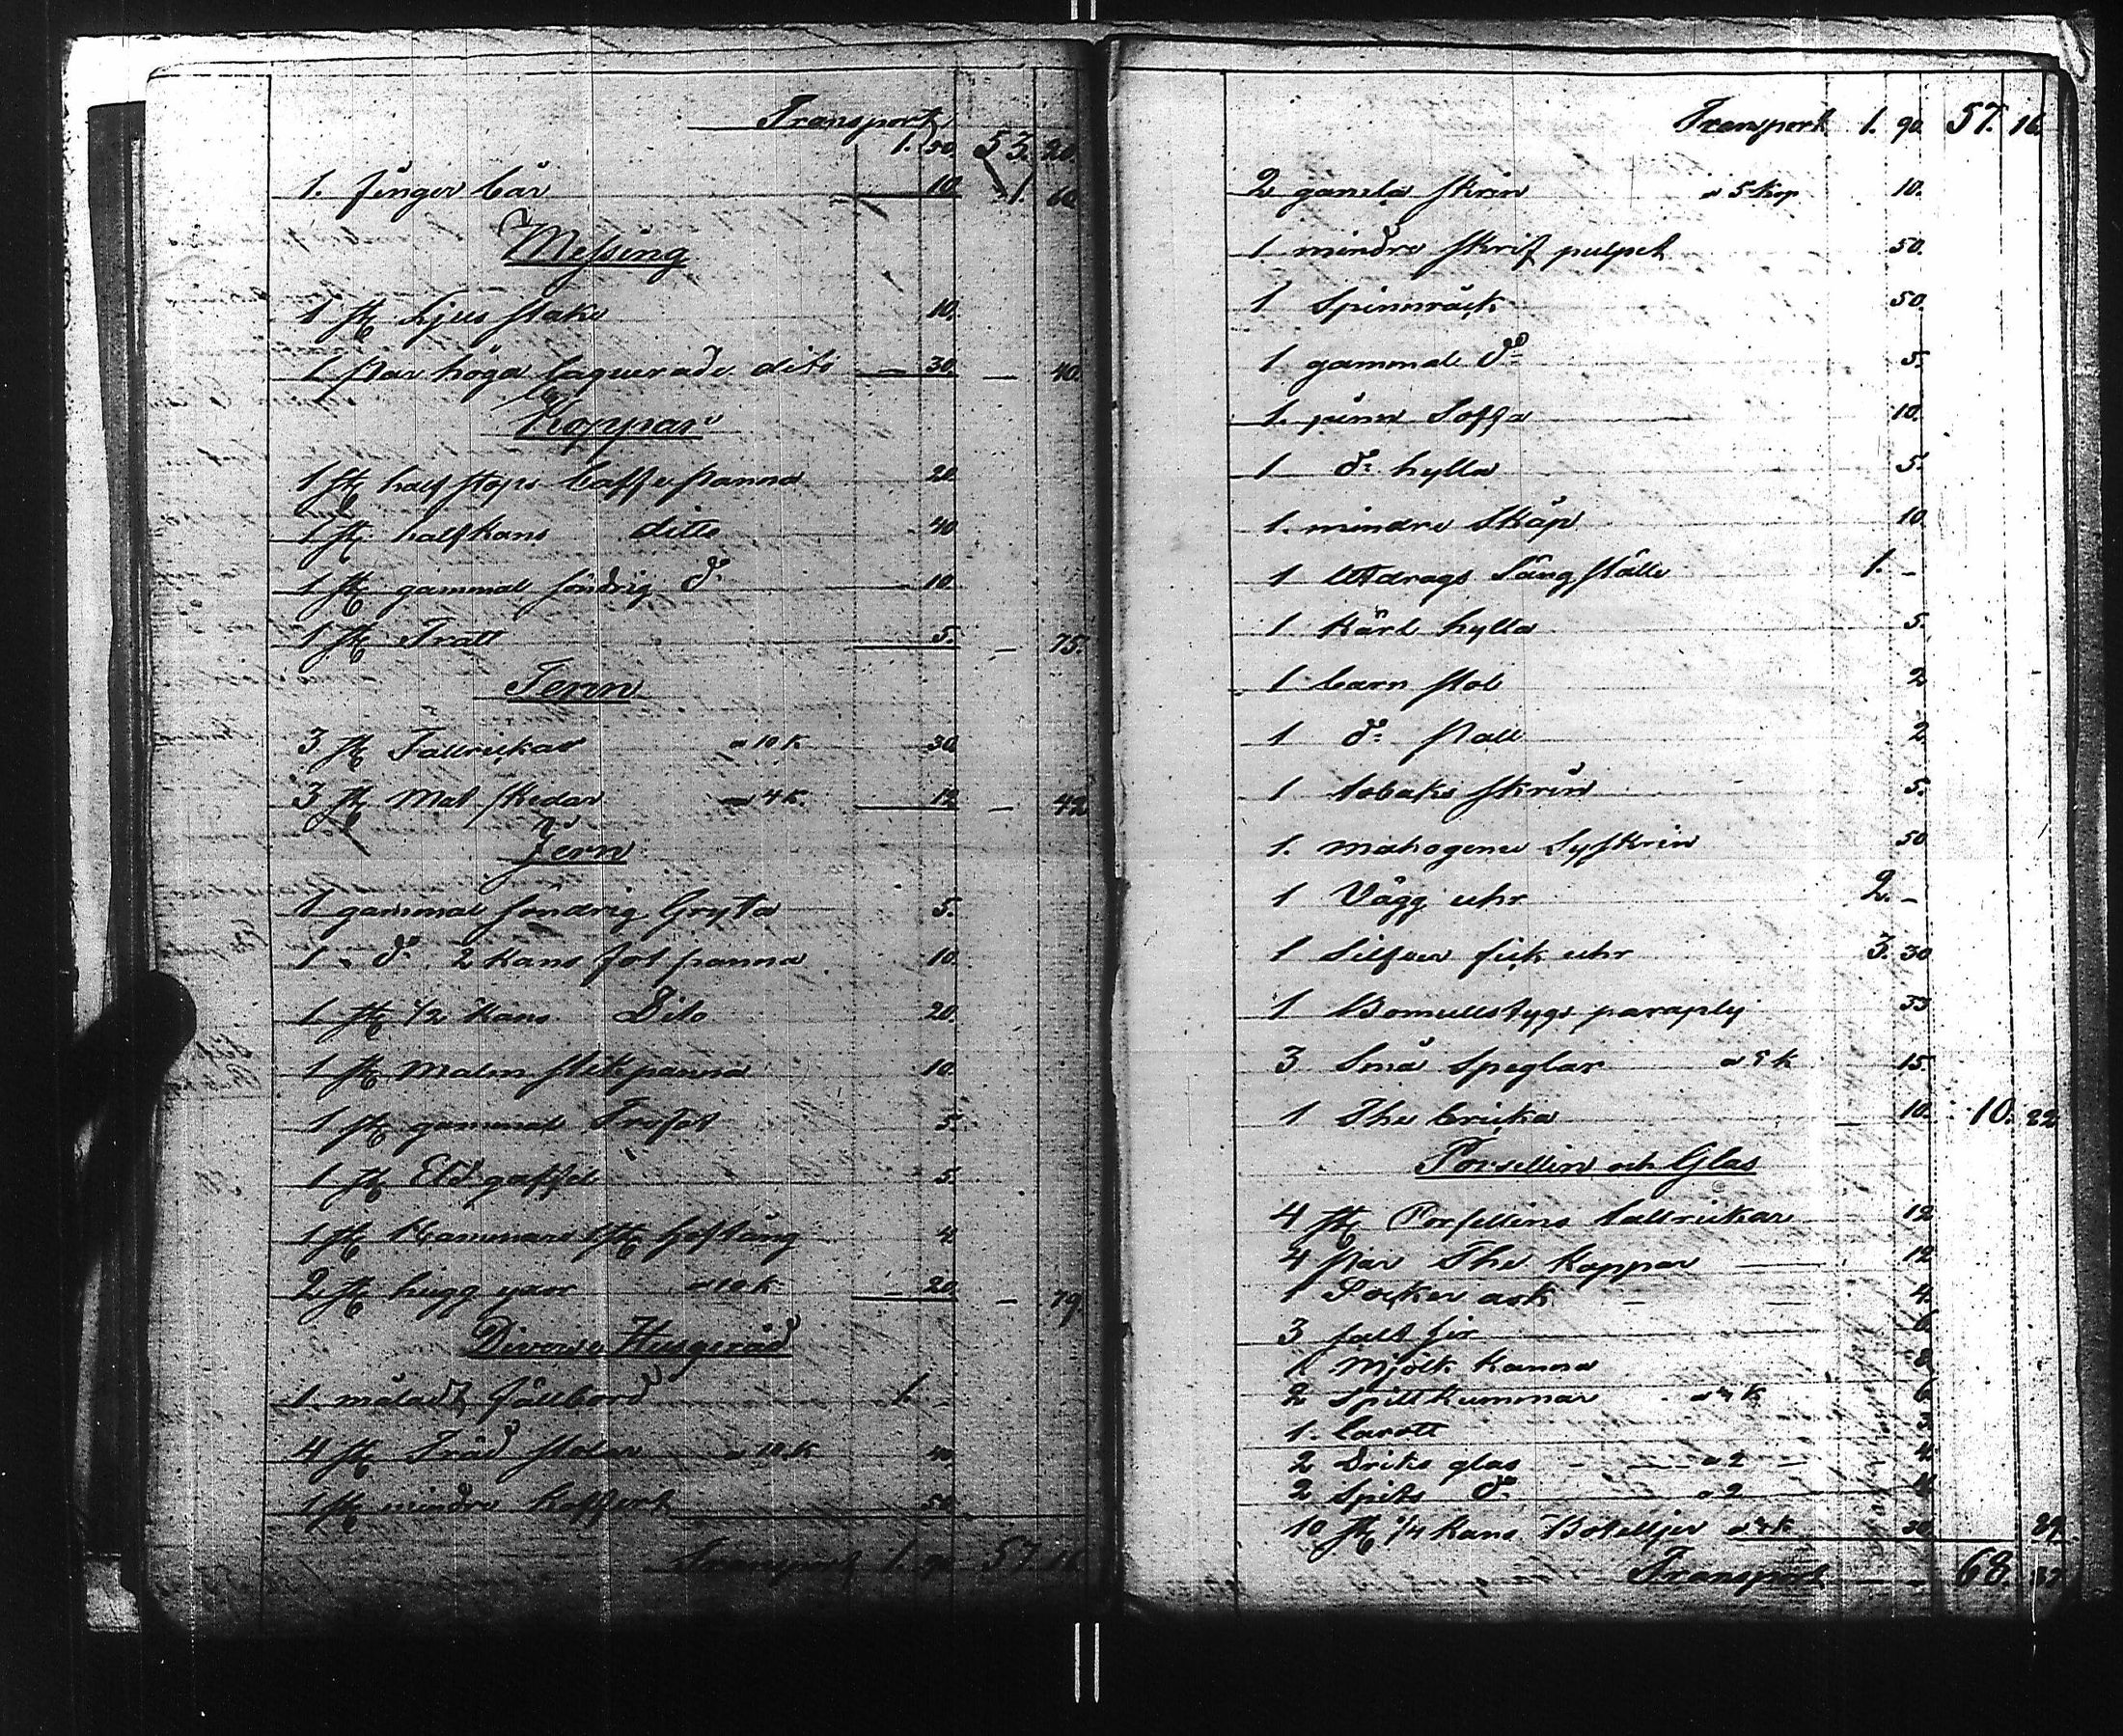 Transport
1. 50. 53. 20.
1. finger bär 10. 1. 60
Messing
1 st Ljus stake 10.
1 par höga laquerade dito 30. 40.
Koppar
1 st half stops Caffe panna 20
1 st half kans ditto 40
1 st gammal söndrig do 10.
1 st Tratt 5. 75.
Tenn
3 st Tallrickar a 10 K 30.
3 st Mat skedar a 4 K. 12 42
Jern
1 gammal söndrig Gryta 5.
1 do 2 kans fot panna 10.
1 st 1/2 kans Dito 20.
1 st Malm stekpanna 10.
1 st gammal Trefot 5
1 st Eld gaffel 5.
1 st Hammare 1 st hoftång 4
2 st hugg yxor a 10 K 20. 79.
Diverse Husgeråd
1. måladt fällbord 1. -
4 st Träd stolar a 10 K 40
1 st mindre koffert 50
Transport 1. 90. 57. 16
Transport 1. 90. 57. 16.
2 gamla skrin a 5 Kop 10.
1 mindre skrif pulpet 50.
1 Spinnråck 50.
1 gammal do 5.
1. pinn Soffa 10.
1 do hylla 5.
1. mindre Skåp 10
1 Utdrags Säng ställe 1. -
1 Kärl hylla 5.
1 barn stol 2
1 do stall 2.
1 tobaks skrin 5.
1. mahogene Syskrin 50
1 Vägg uhr 2. -
1 Silfver fick uhr 3. 30
1 Bomullstygs paraply 53
3 Små Speglar a 5 K 15.
1 The bricka 10. 10. 22
Porsellin och Glas
4 st Porsellins tallrickar 12
4 par The Koppar 12
1 Socker ask 4.
3 6
1 Mjölk kanna 8
2 Spillkummar a 3 K 6
1. Carott 3
2 Driks glas a 2 4.
2 Spits do a 2 4
10 st 1/4 kans Botelljer a 3 K 30 89.
Transport 68. 27